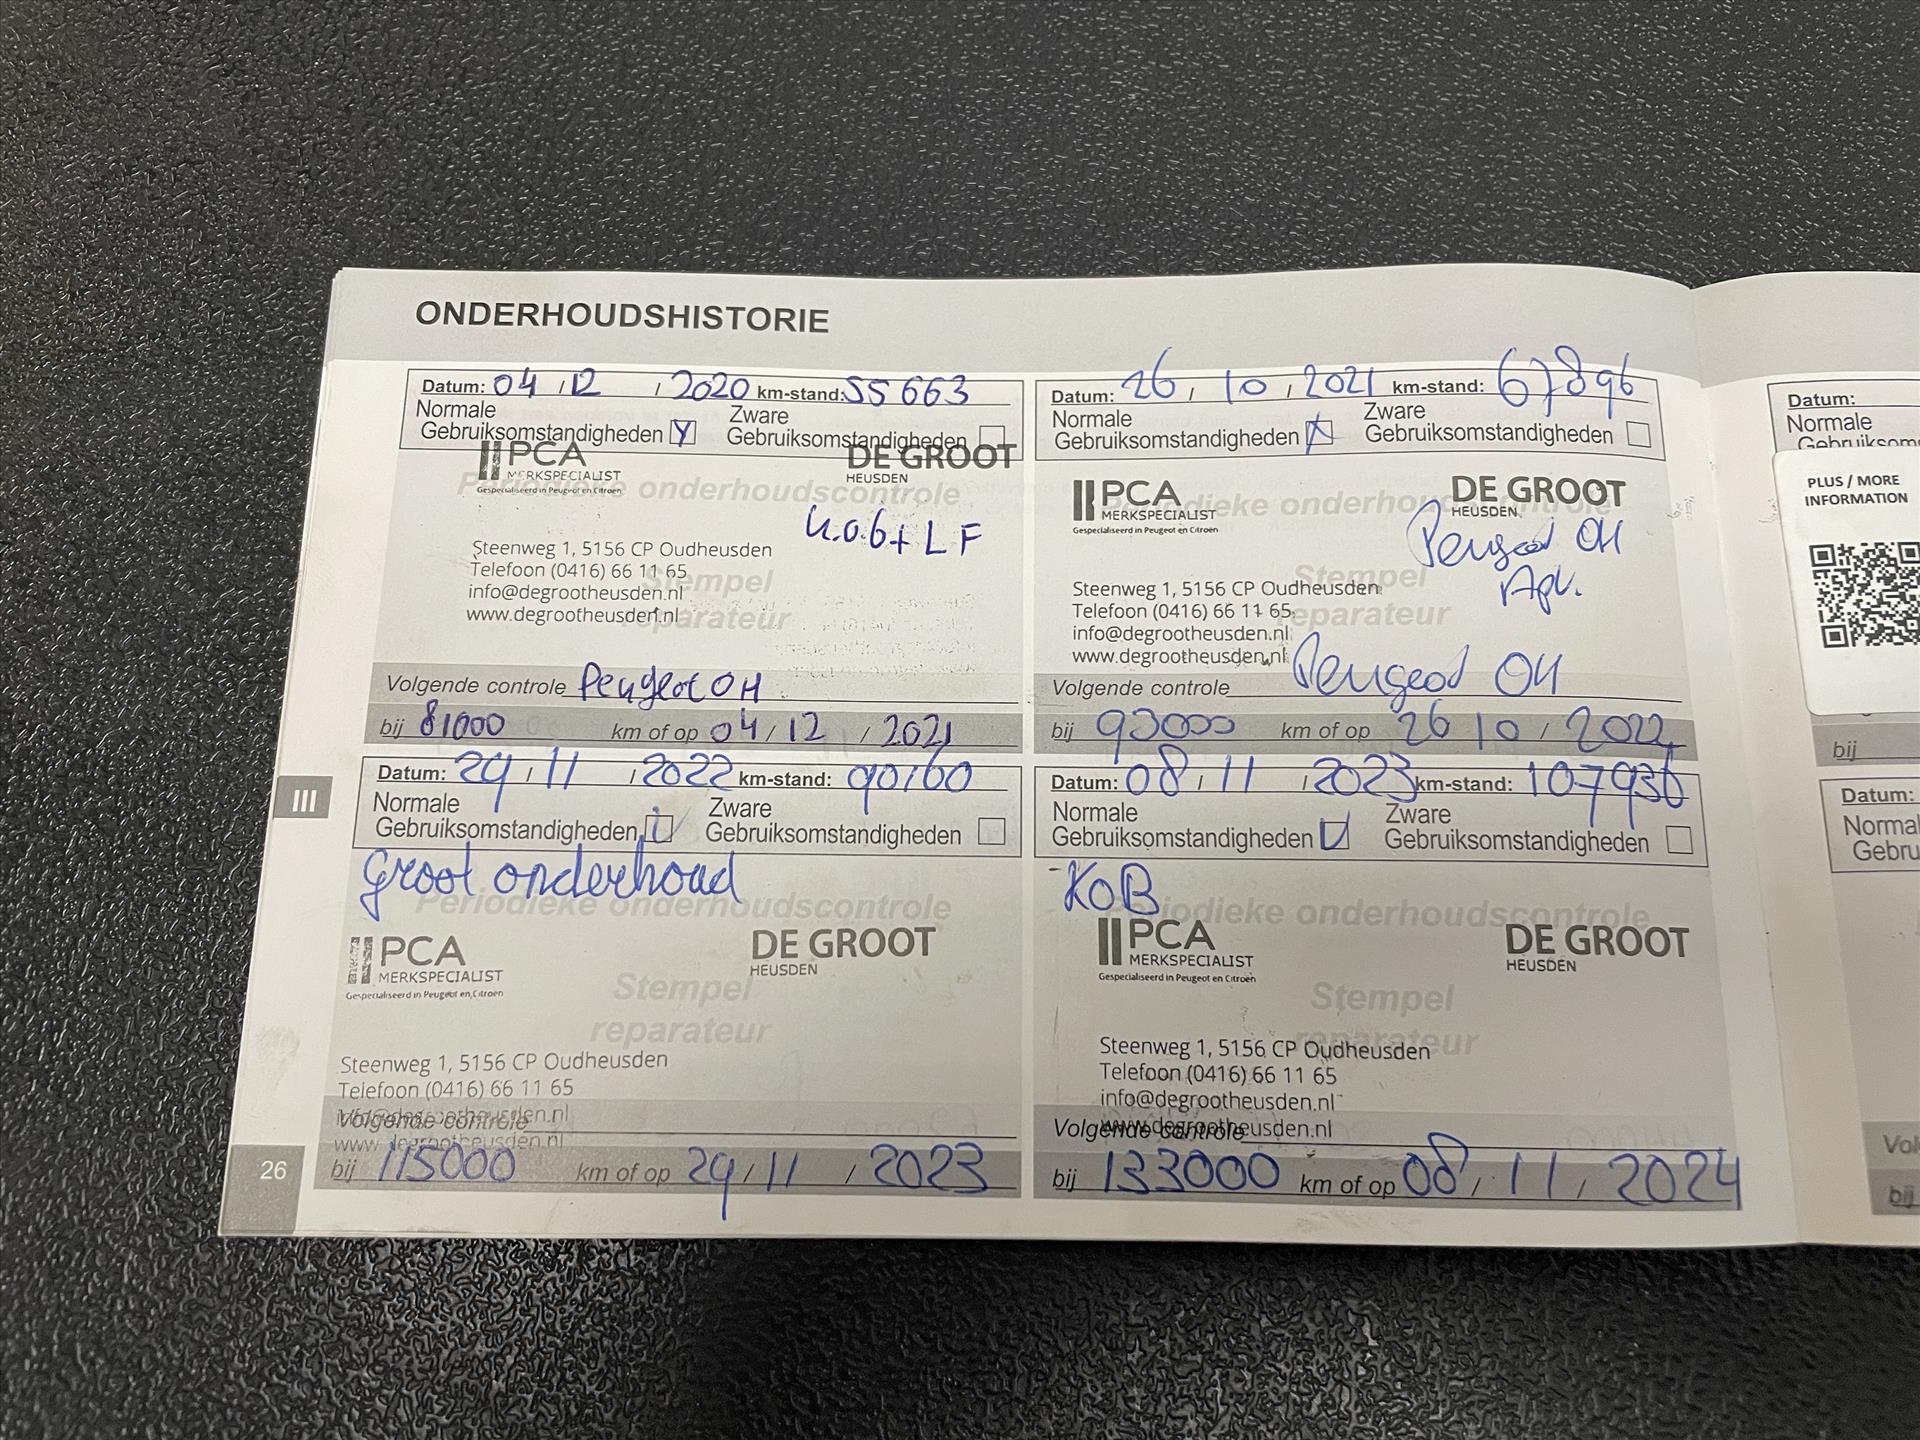 ONDERHOUDSHISTORIE
Datum: 04 / 12 / 2020 km-stand: 55 663
Normale Gebruiksomstandigheden Zware Gebruiksomstandigheden
PCA DE GROOT
MERKSPECIALIST HEUSDEN
Gespecialiseerd in Peugeot en Citroen
Periodieke onderhoudscontrole
k.o.b + LF
Steenweg 1, 5156 CP Oudheusden
Telefoon (0416) 66 11 65
Stempel
info@degrootheusden.nl
www.degrootheusden.nl
reparateur
Volgende controle Peugeot OH
bij 81000 km of op 04 / 12 / 2021
Datum: 26 / 10 / 2021 km-stand: 67896
Normale Gebruiksomstandigheden Zware Gebruiksomstandigheden
PCA DE GROOT
MERKSPECIALIST HEUSDEN
Gespecialiseerd in Peugeot en Citroen
Periodieke onderhoudscontrole
Peugeot OH
Steenweg 1, 5156 CP Oudheusden
Stempel
Telefoon (0416) 66 11 65
reparateur
info@degrootheusden.nl
www.degrootheusden.nl
Volgende controle Peugeot OH
bij 93000 km of op 26 10 / 2022
Datum: 29 / 11 / 2022 km-stand: 90160
Normale Gebruiksomstandigheden Zware Gebruiksomstandigheden
Groot onderhoud
Periodieke onderhoudscontrole
PCA DE GROOT
MERKSPECIALIST HEUSDEN
Gespecialiseerd in Peugeot en Citroen
Stempel
reparateur
Steenweg 1, 5156 CP Oudheusden
Telefoon (0416) 66 11 65
info@degrootheusden.nl
Volgende controle
www.degrootheusden.nl
bij 115000 km of op 29 / 11 / 2023
Datum: 08 / 11 / 2023 km-stand: 107936
Normale Gebruiksomstandigheden Zware Gebruiksomstandigheden
KOB
Periodieke onderhoudscontrole
PCA DE GROOT
MERKSPECIALIST HEUSDEN
Gespecialiseerd in Peugeot en Citroen
Stempel
reparateur
Steenweg 1, 5156 CP Oudheusden
Telefoon (0416) 66 11 65
info@degrootheusden.nl
www.degrootheusden.nl
Volgende controle
bij 133000 km of op 08 / 11 / 2024
III
26
Datum:
Normale
PLUS / MORE
INFORMATION
bij
Datum:
bij